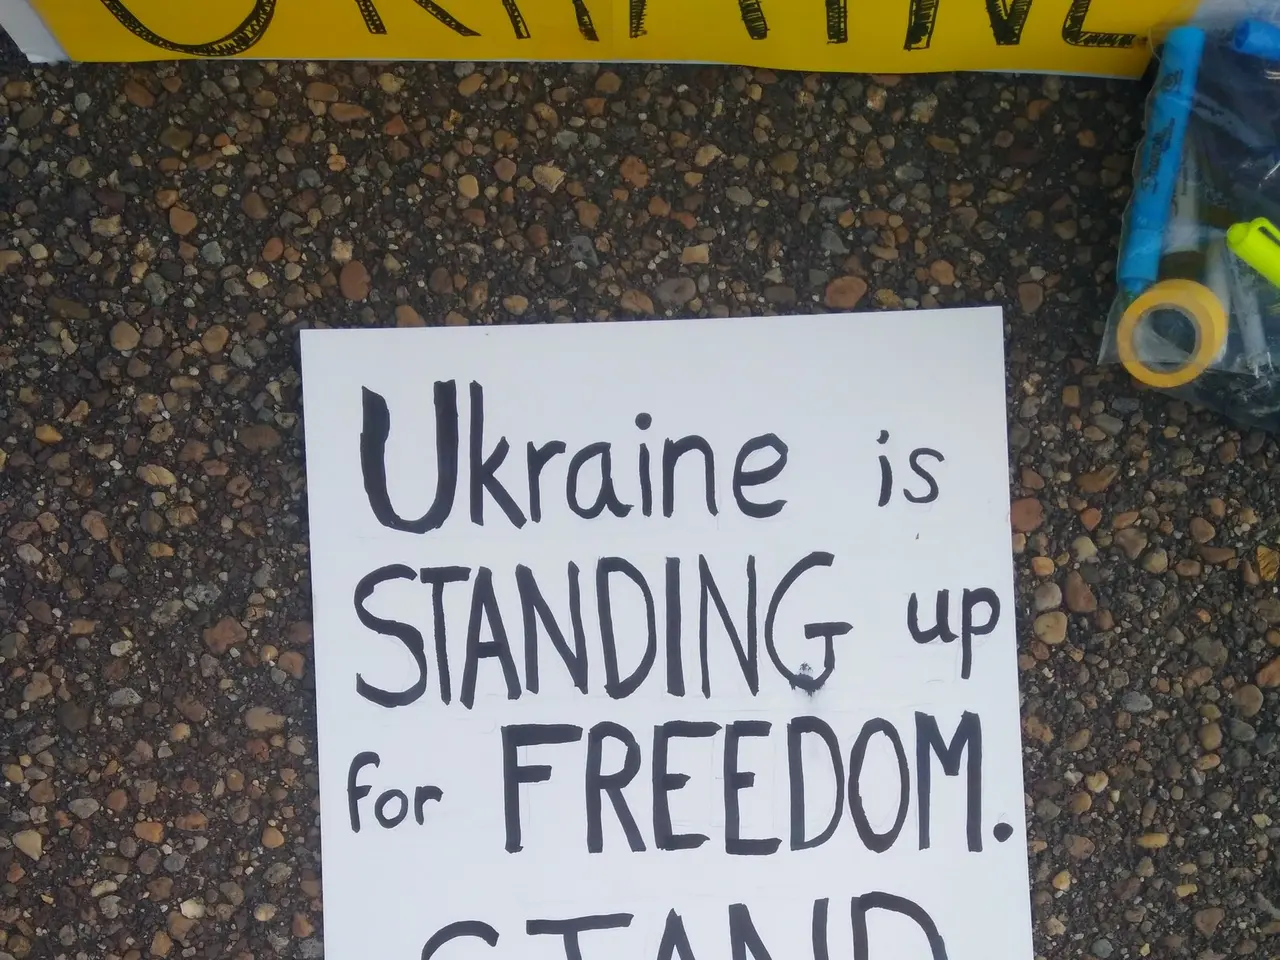 UKRAINE
Ukraine is
STANDING up
for FREEDOM.
STAND